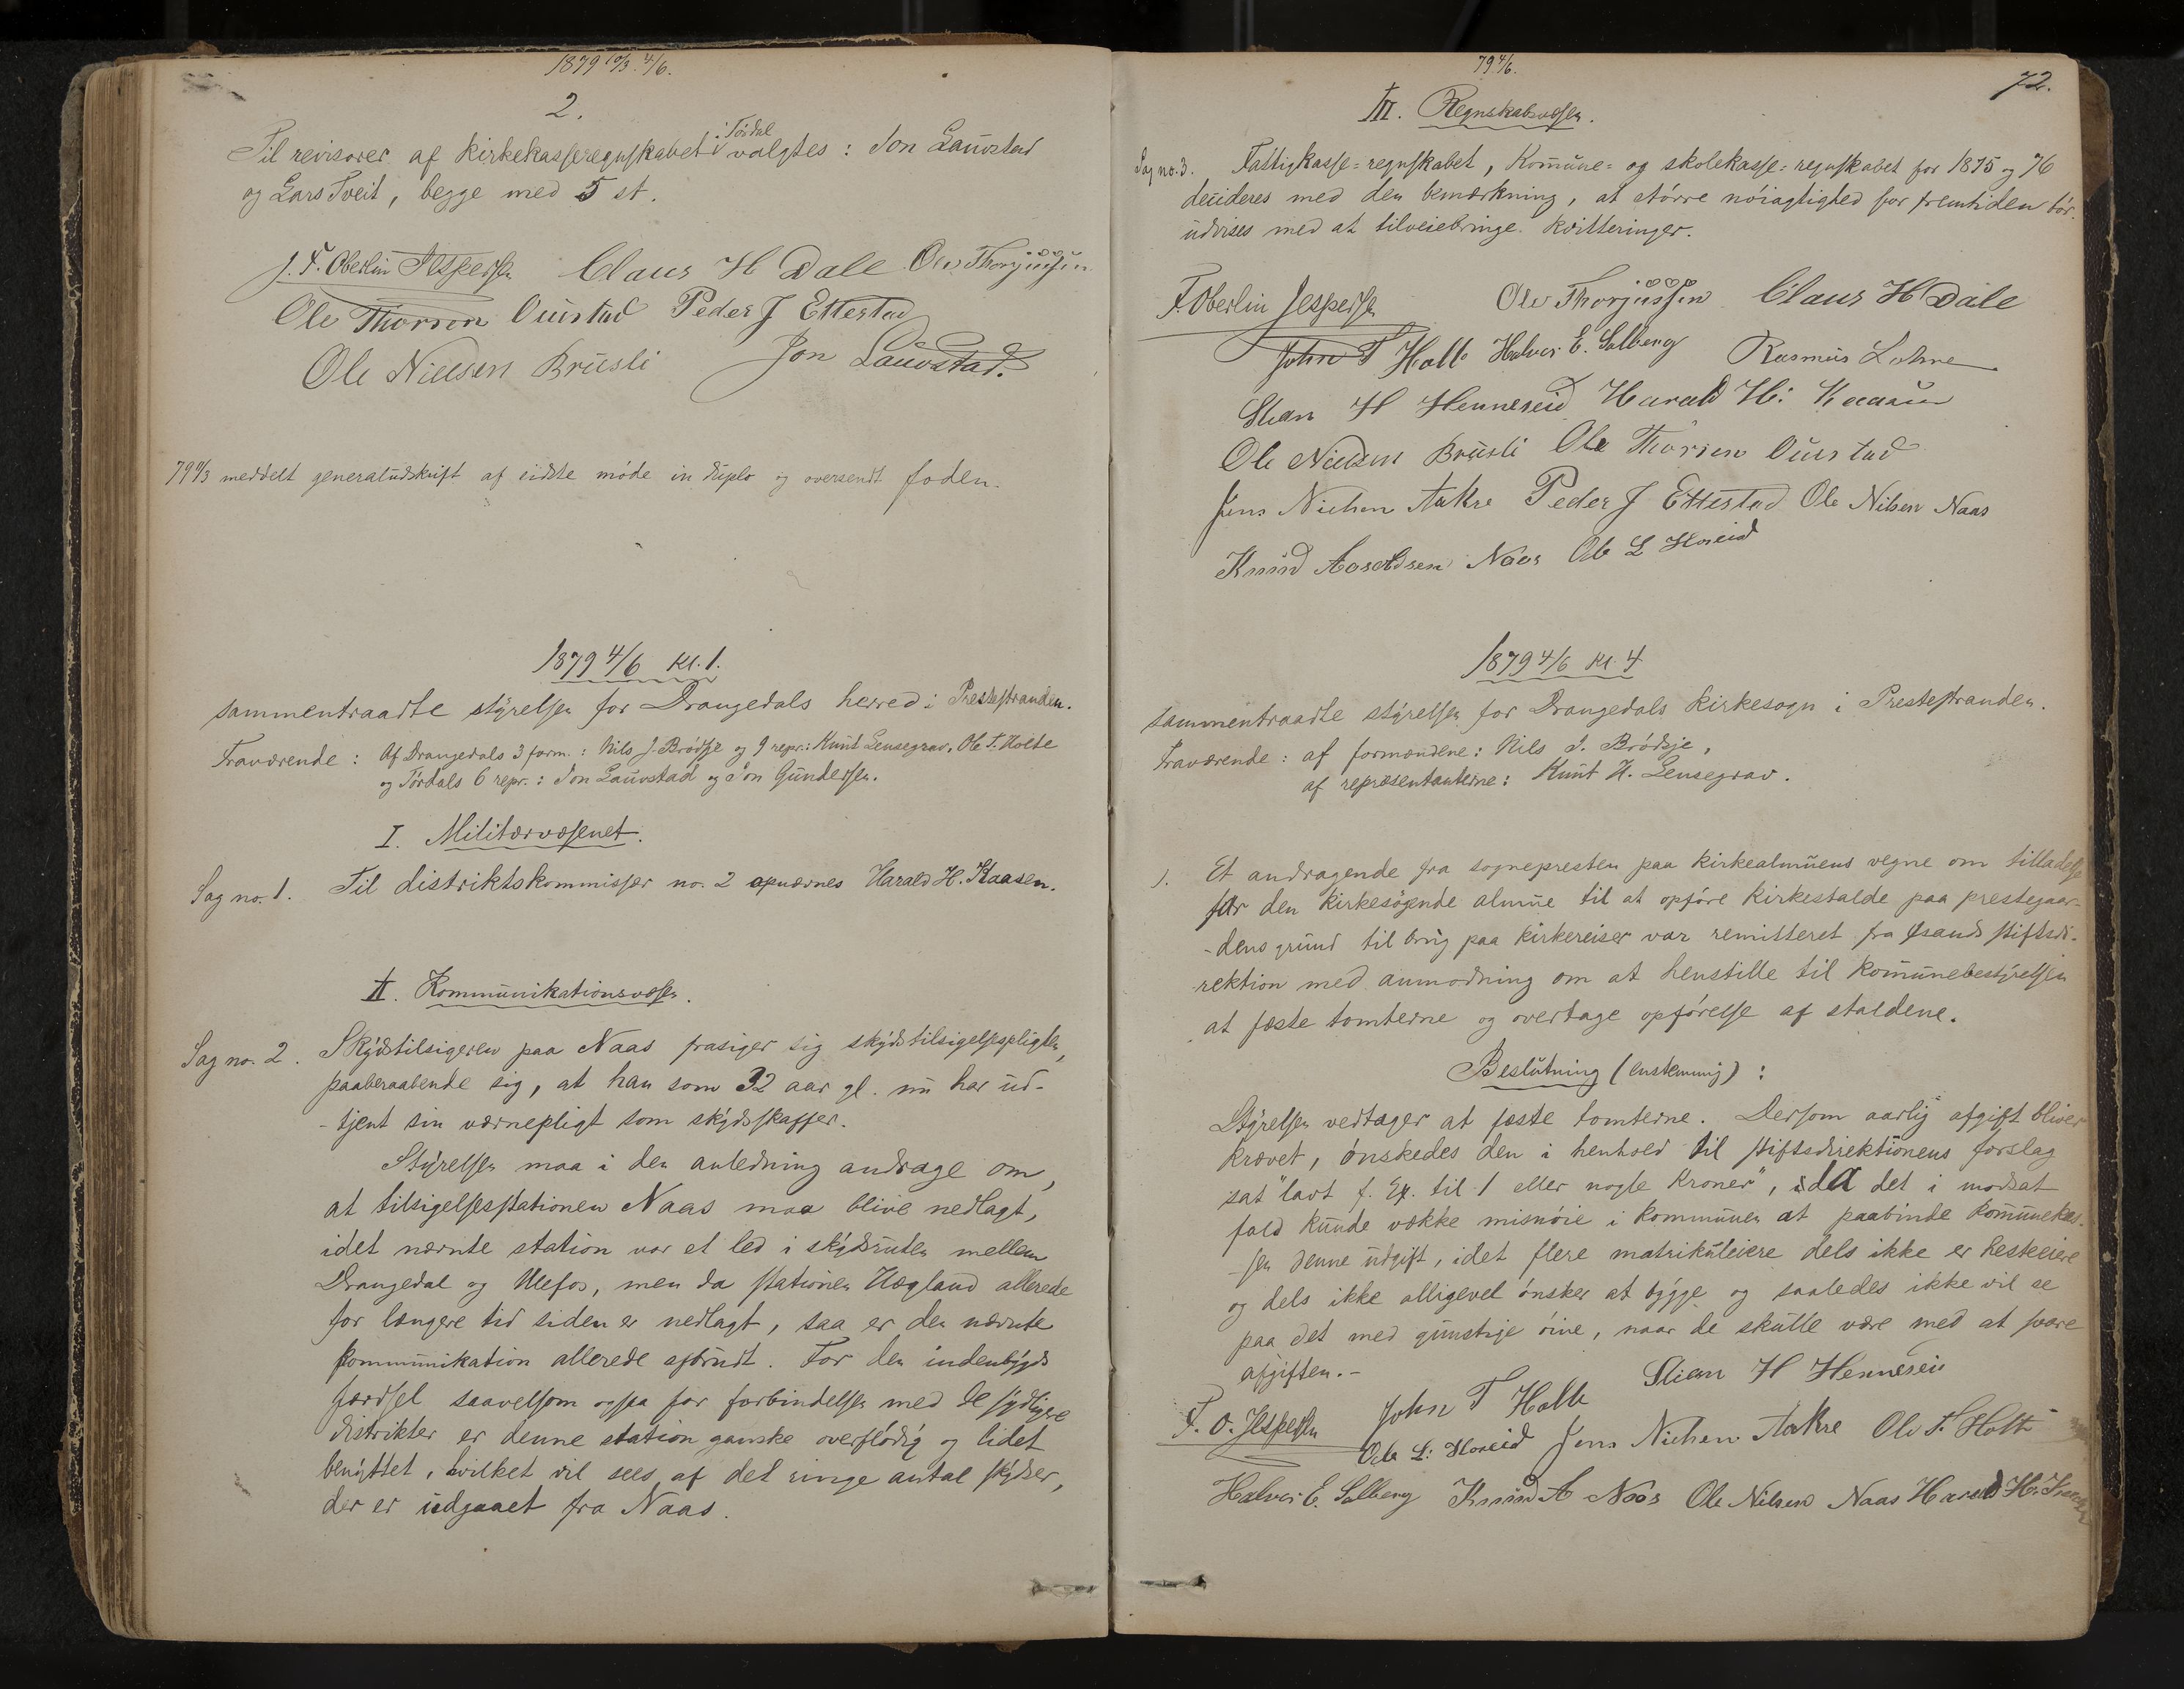 1879 10/3. 4/6.
2.
Til revisorer af kirkekasseregnskabet i Tørdal valgtes: Jon Lauvstad
og Lars Tveit, begge med 5 st.
J. F. Oberlin Jespersen Claus H Dale Ole Thorjussen
Ole Thorsen Ouestad Peder J Ettestad
Ole Nielsen Brusli Jon Lauvstad.
79 meddelt generaludskrift af sidste møde in duplo og oversendt foden.
1879 4/6 Kl. 1.
sammentraadte styrelsen for Drangedals herred i Prestestranden.
Fraværende: Af Drangedals 3 form.: Nils J. Brødsje og 9 repr.: Knut Lensegrav, Ole T. Holte
og Tørdals 6 repr.: Jon Lauvstad og Jon Gundersen.
I. Militærvæsenet.
Sag no. 1. Til distriktskommissær no. 2 opnævnes Harald H. Kaasen.
II. Kommunikationsvæsen.
Sag no. 2. Skydstilsigeren paa Naas frasiger sig skydstilsigelsespligten,
paaberaabende sig, at han som 32 aar gl. nu har ud-
-tjent sin værnepligt som skydsskaffer.
Styrelsen maa i den anledning andrage om,
at tilsigelsesstationen Naas maa blive nedlagt,
idet nævnte station var et led i skydsruten mellem
Drangedal og Ulefos, men da stationen Hægland allerede
for længere tid siden er nedlagt, saa er den nævnte
kommunikation allerede afbrudt. For den indenbygds
færdsel saavelsom ogsaa for forbindelsen med de sydligere
distrikter er denne station ganske overflødig og lidet
benyttet, hvilket vil sees af det ringe antal skydser,
der er udgaaet fra Naas.
79 4/6.
72.
III. Regnskabsvæsen.
Sag no. 3. Fattigkasse-regnskabet, Kommune- og skolekasse-regnskabet for 1875 og 76
decideres med den bemærkning, at større nøiagtighed for fremtiden bør
udvises med at tilveiebringe kvitteringer.
F. Oberlin Jespersen Ole Thorjussen Claus H Dale
John T Holte Halvor E. Solberg Rasmus Lohne
Stian H Henneseid Harald H. Kaasen
Ole Nielsen Brusli Ole Thorsen Ouestad
Jens Nielsen Aakre Peder J Ettestad Ole Nilsen Naas
Knud Naas Ole L Hoseid
1879 4/6 Kl. 4
sammentraadte styrelsen for Drangedals kirkesogn i Prestestranden.
Fraværende: af formændene: Nils J. Brødsje,
af repræsentanterne: Knut H. Lensegrav.
1. Et andragende fra sognepresten paa kirkealmuens vegne om tilladelse
for den kirkesøgende almue til at opføre kirkestalde paa prestegaar-
-dens grund til brug paa kirkereiser var remitteret fra Xsands stiftsdi-
rektion med anmodning om at henstille til kommunebestyrelsen
at fæste tomterne og overtage opførelse af staldene.
Beslutning (enstemmig):
Styrelsen vedtager at fæste tomterne. Dersom aarlig afgift bliver
krævet, ønskedes den i henhold til stiftsdirektionens forslag
sat "lavt f. Ex. til 1 eller nogle Kroner", da det i modsat
fald kunde vække misnøie i kommunen at paabinde kommunekas-
-sen denne udgift, idet flere matrikuleiere dels ikke er hesteeiere
og dels ikke alligevel ønsker at bygge og saaledes ikke vil se
paa det med gunstige øine, naar de skulle være med at svare
afgiften.-
F. O. Jespersen John T Holte Stian H Henneseid
Ole L. Hoseid Jens Nielsen Aakre Ole T. Holte
Halvor E. Solberg Knud A Naas Ole Nilsen Naas Harald H. Kaasen